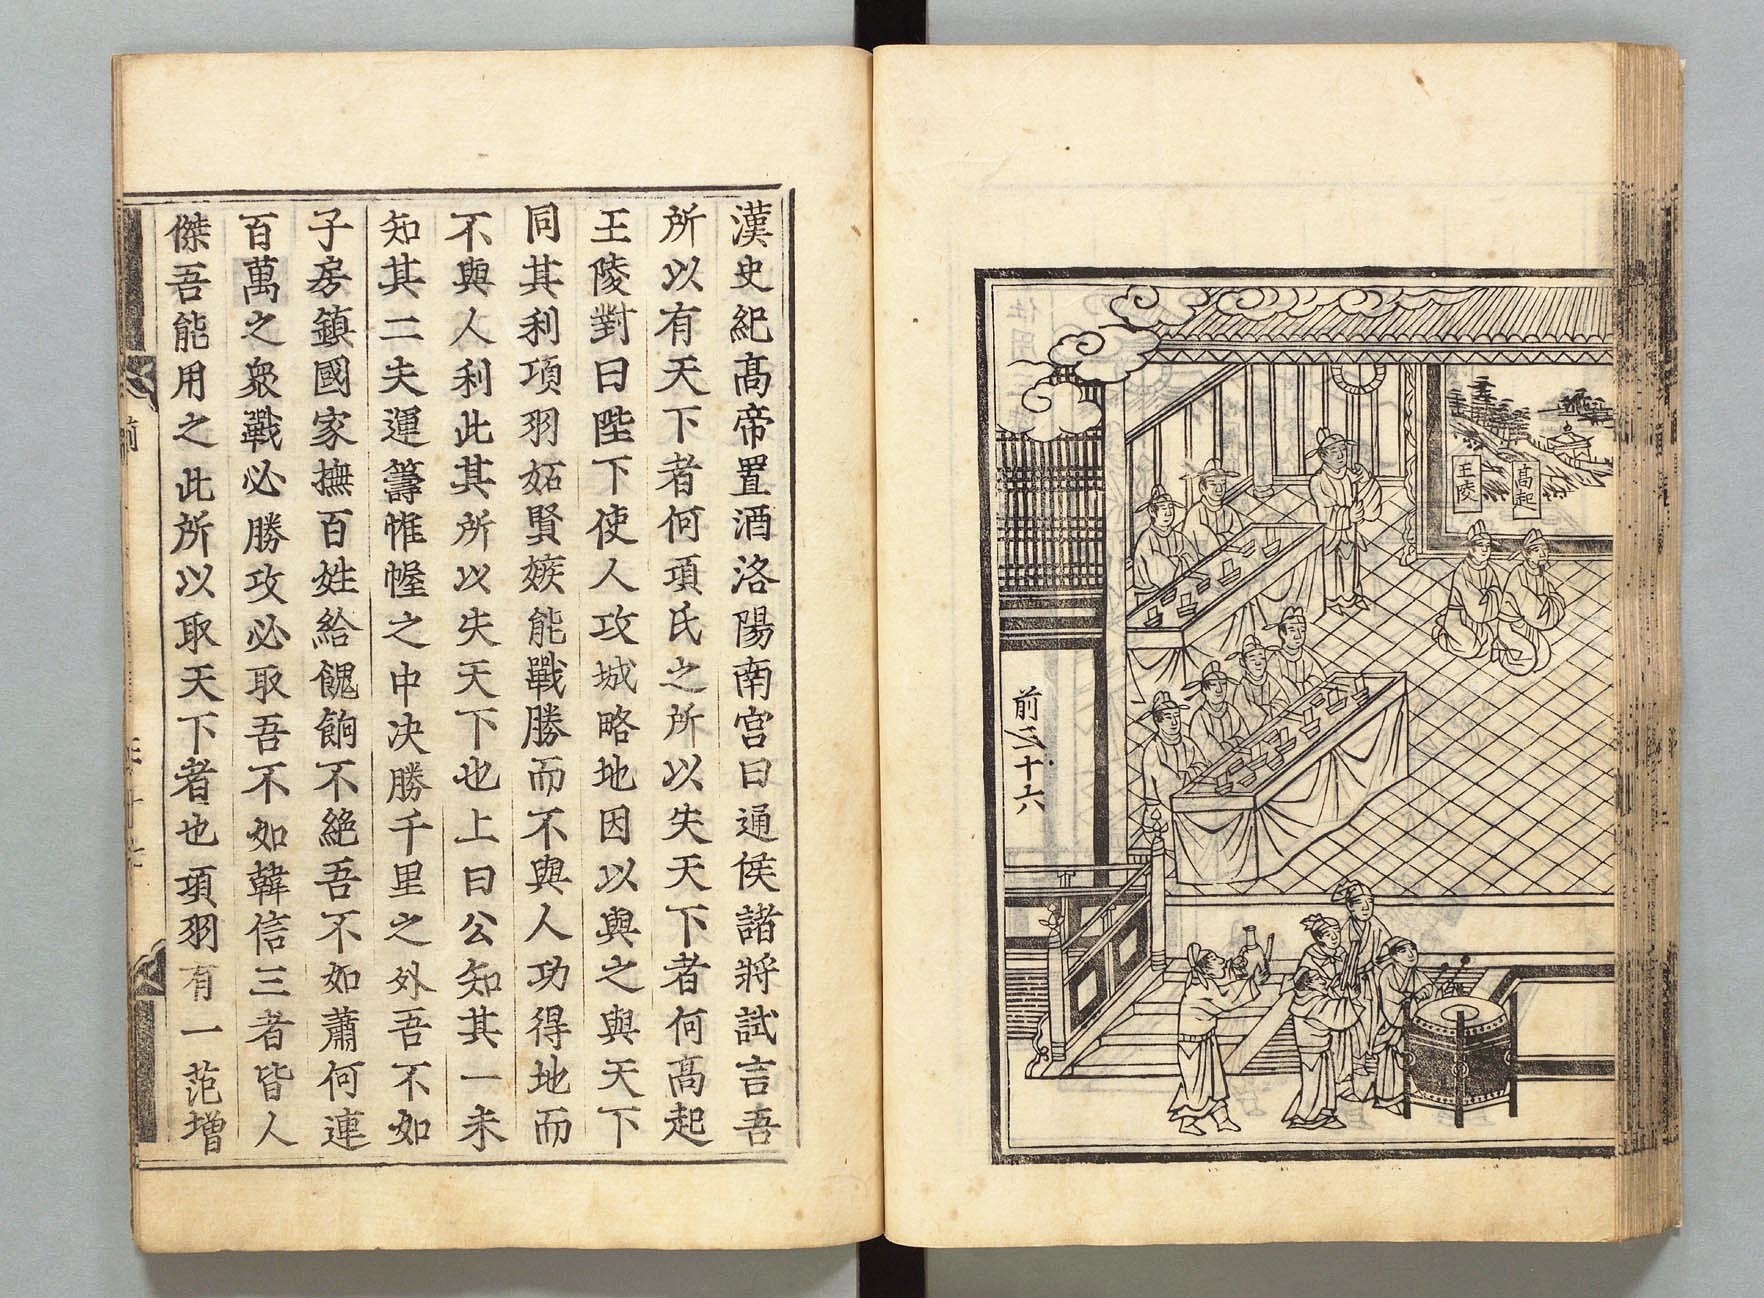 髙起
王陵
前二十六
漢史紀髙帝置酒洛陽南宫曰通侯諸將試言吾
所以有天下者何項氏之所以失天下者何髙起
王陵對曰陛下使人攻城略地因以與之與天下
同其利項羽妬賢嫉能戰勝而不與人功得地而
不與人利此其所以失天下也上曰公知其一未
知其二夫運籌帷幄之中决勝千里之外吾不如
子房鎮國家撫百姓給餽餉不絶吾不如蕭何連
百萬之衆戰必勝攻必取吾不如韓信三者皆人
傑吾能用之此所以取天下者也項羽有一范增
前